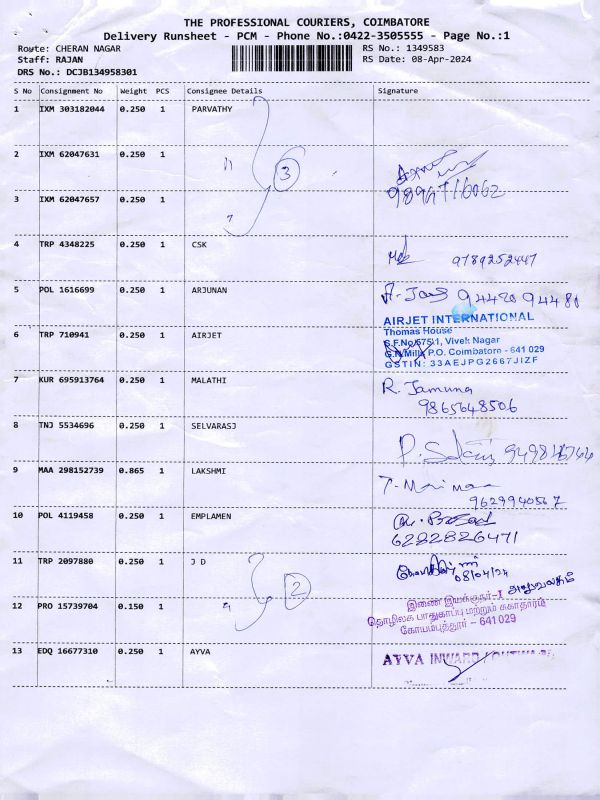 THE PROFESSIONAL COURIERS, COIMBATORE
Delivery Runsheet - PCM - Phone No.:0422-3505555 - Page No.:1
Route: CHERAN NAGAR RS No.: 1349583
Staff: RAJAN RS Date: 08-Apr-2024
DRS No.: DCJB134958301
S No Consignment No Weight PCS Consignee Details Signature
1 IXM 303182044 0.250 1 PARVATHY
2 IXM 62047631 0.250 1 11 3
3 IXM 62047657 0.250 1
4 TRP 4348225 0.250 1 CSK 9789252447
5 POL 1616699 0.250 1 ARJUNAN 94420 94480
AIRJET INTERNATIONAL
6 TRP 710941 0.250 1 AIRJET Thomas House
S.F.No 575/1, Vivek Nagar
G.N.Mills P.O. Coimbatore - 641 029
GSTIN: 33AEJPG2667J1ZF
7 KUR 695913764 0.250 1 MALATHI R. Jamuna
9865648506
8 TNJ 5534696 0.250 1 SELVARASJ
9 MAA 298152739 0.865 1 LAKSHMI
9629940567
10 POL 4119458 0.250 1 EMPLAMEN
6282826471
11 TRP 2097880 0.250 1 J D 08/04/24
2 இணை இயக்குநர்-I அலுவலகம்
12 PRO 15739704 0.150 1 தொழிலக பாதுகாப்பு மற்றும் சுகாதாரம்
கோயம்புத்தூர் - 641 029
13 EDQ 16677310 0.250 1 AYVA AYVA INWARD / OUTWARD